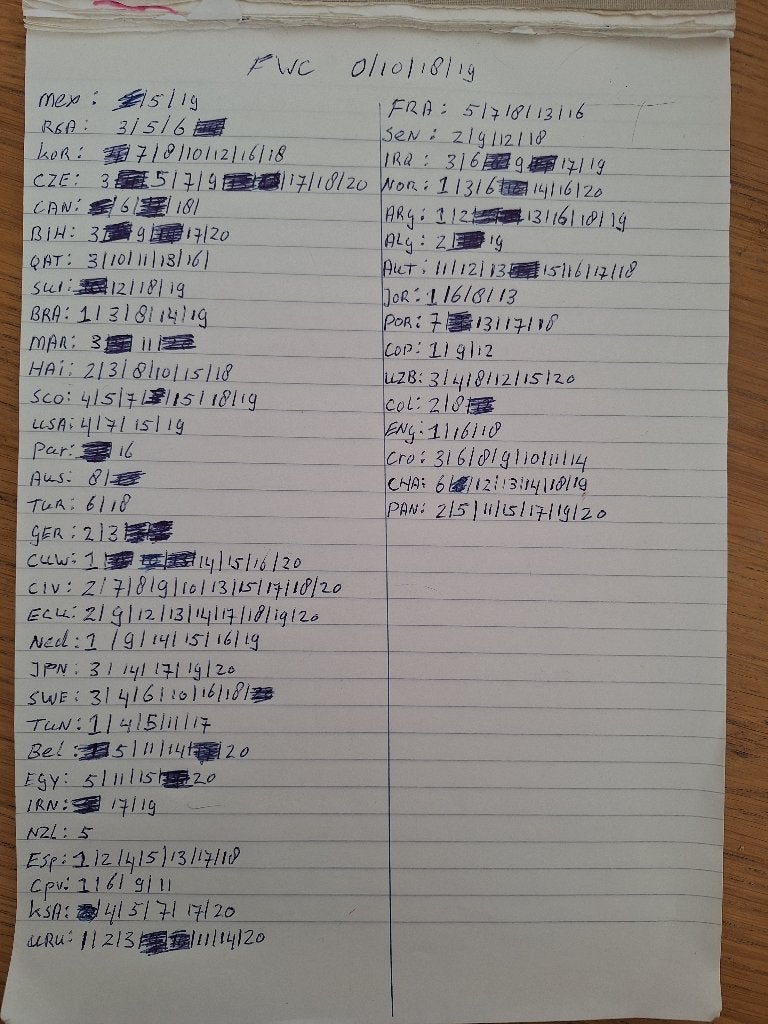 FWC 0/10/18/19
Mex: 5/19
RSA: 3/5/6
KOR: 7/8/10/12/16/18
CZE: 3 5/7/9 17/18/20
CAN: /6/ 18/
BIH: 3 9/ 17/20
QAT: 3/10/11/13/16/
Sui: 12/18/19
BRA: 1/3/8/14/19
MAR: 3 11/
HAi: 2/3/8/10/15/18
SCO: 4/5/7/ /15/18/19
USA: 4/7/15/19
Par: 16
Aus: 8/
TUR: 6/18
GER: 2/3
CUW: 1 14/15/16/20
CIV: 2/7/8/9/10/13/15/17/18/20
ECU: 2/9/12/13/14/17/18/19/20
Ned: 1 /9/14/15/16/19
JPN: 3/14/17/19/20
SWE: 3/4/6/10/16/18/
TUN: 1/4/5/11/17
Bel: 5/11/14 /20
EGY: 5/11/15 20
IRN: 17/19
NZL: 5
Esp: 1/2/4/5/13/17/18
Cpv: 1/6/9/11
KSA: /4/5/7/17/20
URU: 1/2/3 /11/14/20
FRA: 5/7/8/13/16
SEN: 2/9/12/18
IRQ: 3/6 9 17/19
NOR: 1/3/6 14/16/20
ARG: 1/2 13/16/18/19
ALG: 2 19
AUT: 11/12/13 15/16/17/18
JOR: 1/6/8/13
POR: 7 13/17/18
COP: 1/9/12
UZB: 3/4/8/12/15/20
COL: 2/8
ENG: 1/16/18
CRO: 3/6/8/9/10/11/14
GHA: 6/ /12/13/14/18/19
PAN: 2/5/11/15/17/19/20